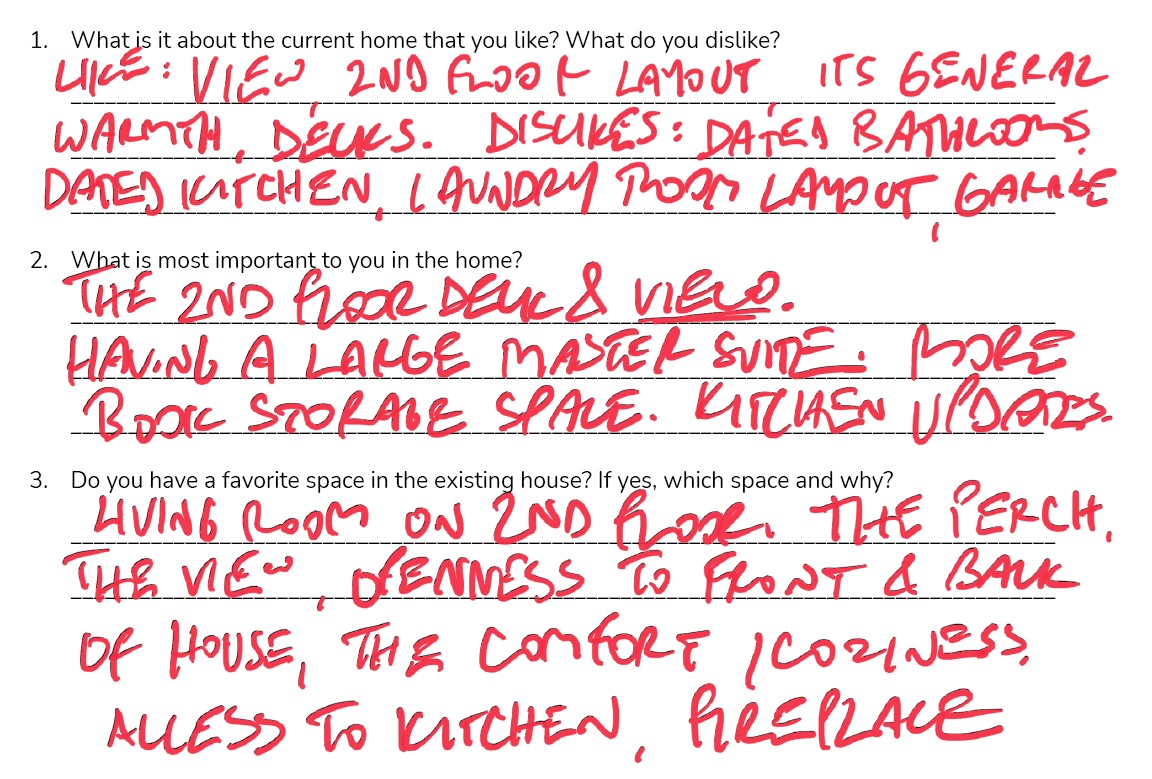 1. What is it about the current home that you like? What do you dislike?
LIKE: VIEW, 2ND FLOOR LAYOUT, ITS GENERAL
WARMTH, DECKS. DISLIKES: DATED BATHROOMS,
DATED KITCHEN, LAUNDRY ROOM LAYOUT, GARAGE
2. What is most important to you in the home?
THE 2ND FLOOR DECK & VIEW.
HAVING A LARGE MASTER SUITE. MORE
BOOK STORAGE SPACE. KITCHEN UPDATES.
3. Do you have a favorite space in the existing house? If yes, which space and why?
LIVING ROOM ON 2ND FLOOR. THE PERCH,
THE VIEW, OPENNESS TO FRONT & BACK
OF HOUSE, THE COMFORT / COZINESS,
ACCESS TO KITCHEN, FIREPLACE